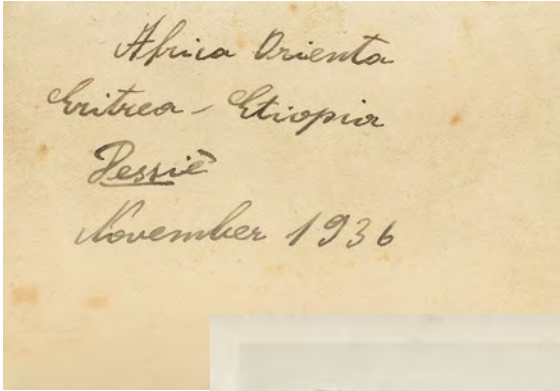 Africa Orienta
Eritrea - Etiopia
Dessiè
November 1936